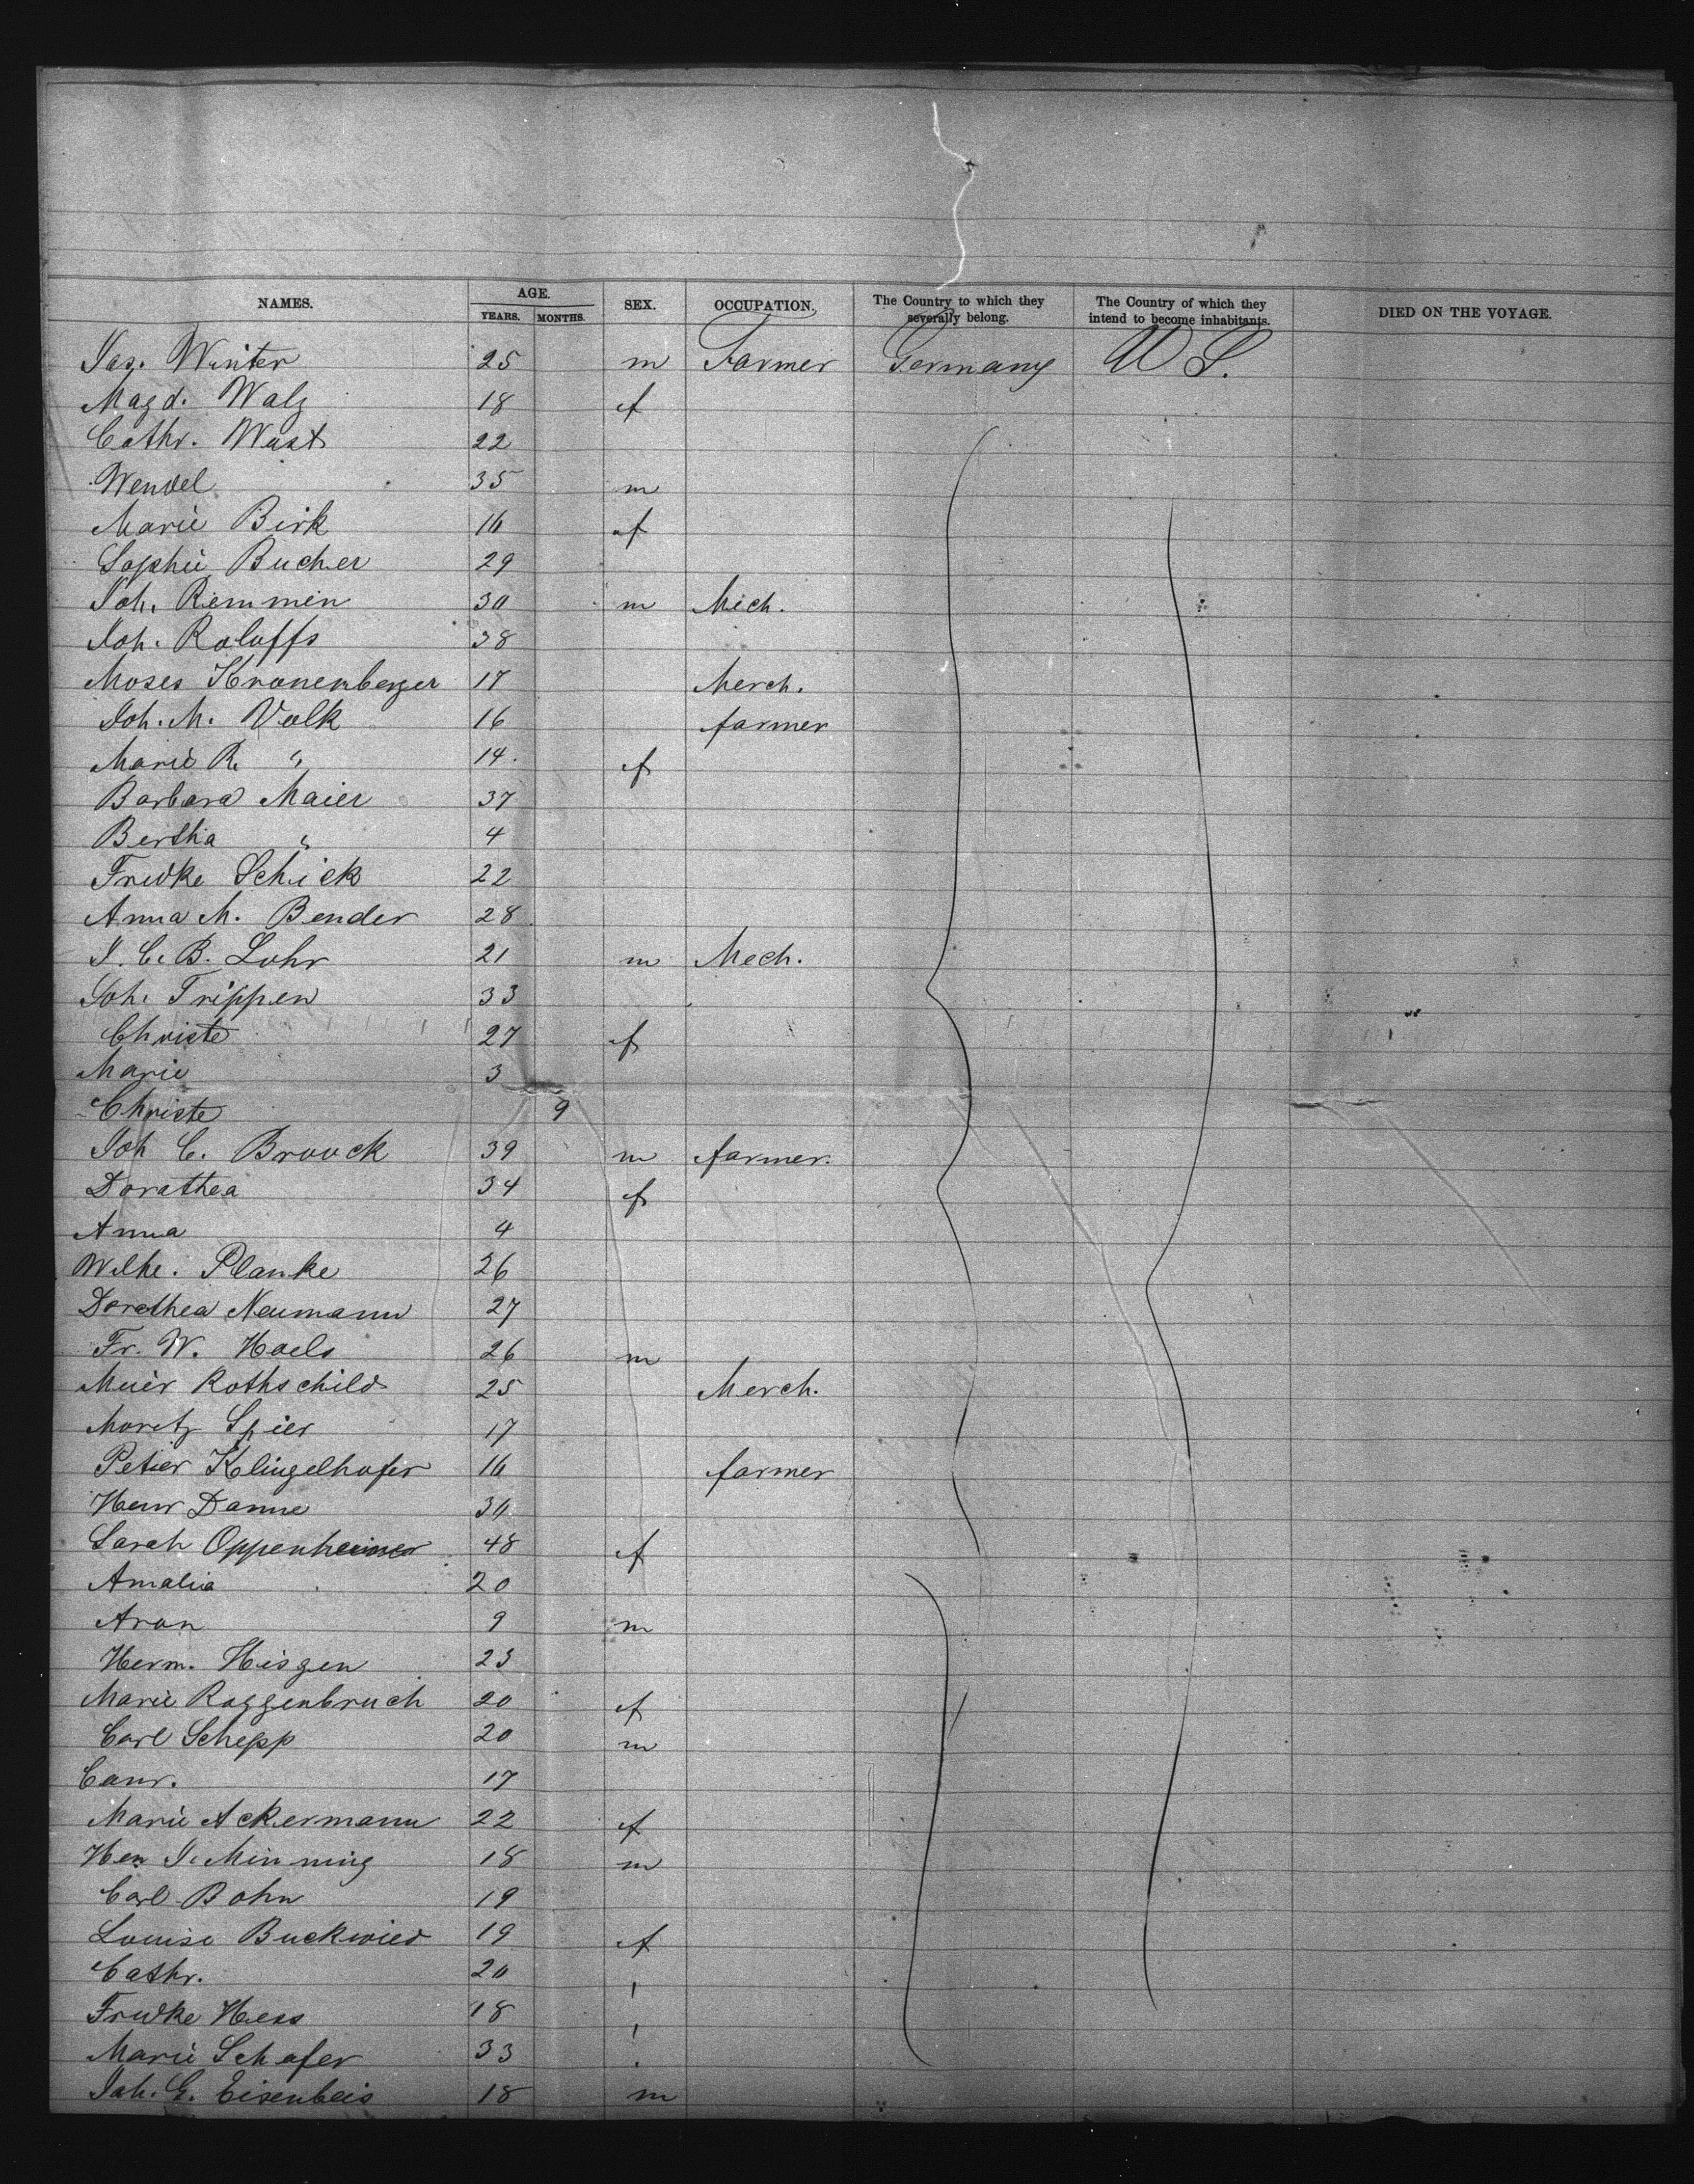 NAMES. AGE. YEARS. MONTHS. SEX. OCCUPATION. The Country to which they severally belong. The Country of which they intend to become inhabitants. DIED ON THE VOYAGE.
Jas. Winter 25 m Farmer Germany U S.
Magd. Walz 18 f
Cathr. Wast 22
Wendel 35 m
Marie Birk 16 f
Sophie Bucher 29
Joh. Remmin 30 m Mech.
Joh. Roloffs 38
Moses Kronenberger 17 Merch.
Joh. M. Volk 16 farmer
Marie R. " 14 f
Barbara Maier 37
Bertha " 4
Fredke Schick 22
Anna M. Bender 28
J. C. B. Lohr 21 m Mech.
Joh. Trippen 33
Christe 27 f
Marie 3
Christe 9
Joh C. Brouck 39 m farmer.
Dorathea 34 f
Anna 4
Wilhe. Planke 26
Dorothea Neumann 27
Fr. W. Hoels 26 m
Meier Rothschild 25 Merch.
Moritz Spier 17
Peter Klingelhofer 16 farmer
Henr Danne 30
Sarah Oppenheimer 48 f
Amalia 20
Aron 9 m
Herm. Hisgen 23
Marie Roggenbruch 20 f
Carl Schepp 20 m
Conr. 17
Marie Ackermann 22 f
Hen J. Minning 18 m
Carl Bohn 19
Louise Buckwied 19 f
Cathr. 20 '
Fredke Hess 18 '
Marie Schafer 33
Joh. G. Eisenbeis 18 m